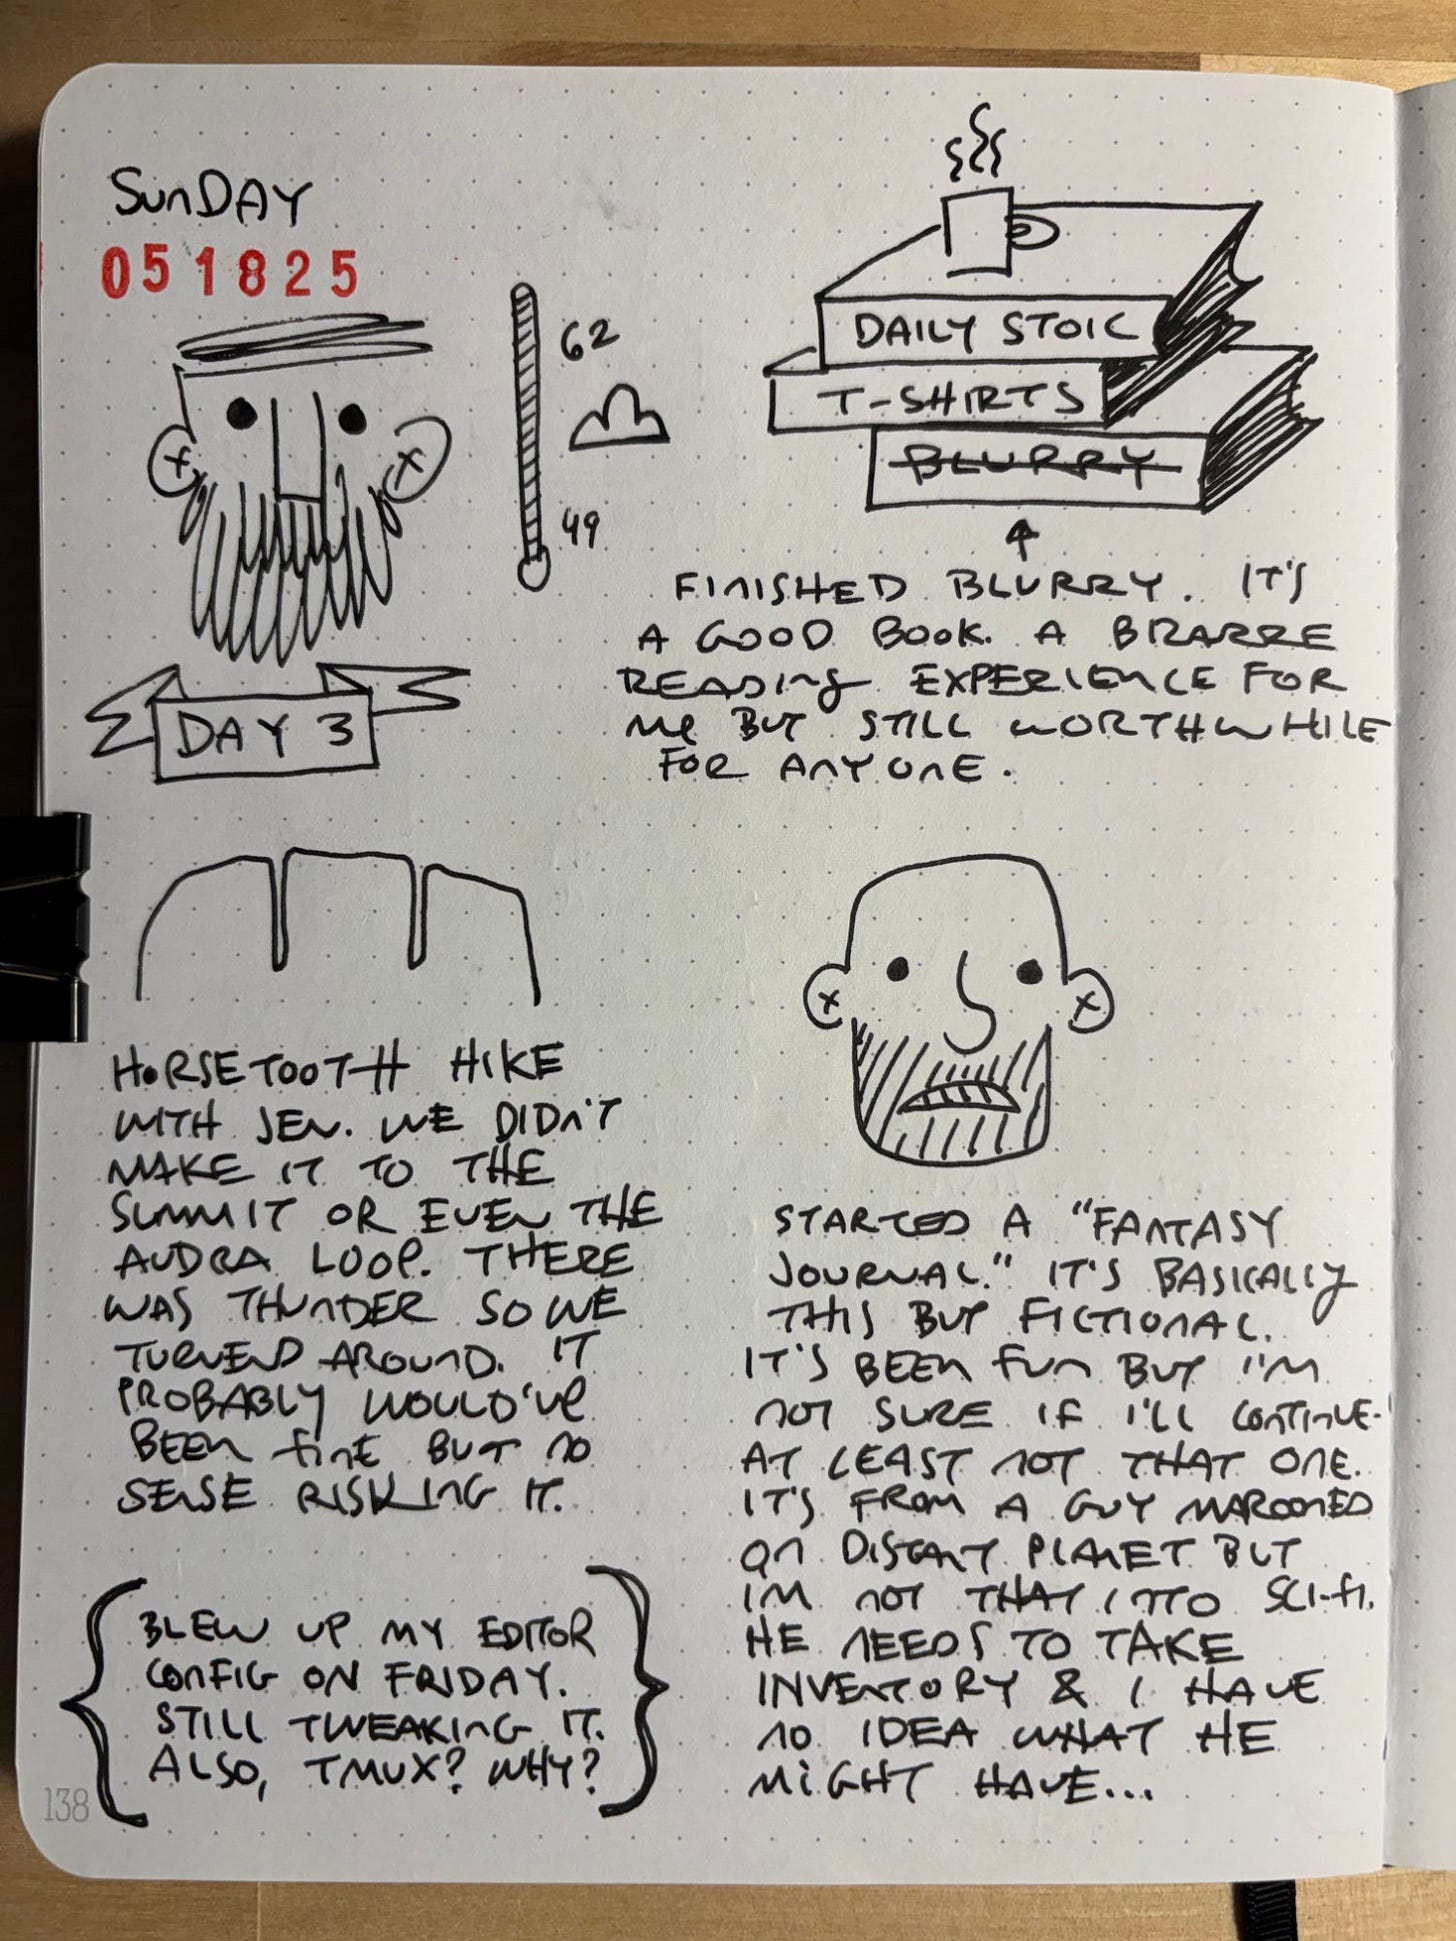 SUNDAY
051825
62
49
DAY 3
DAILY STOIC
T-SHIRTS
BLURRY
FINISHED BLURRY. IT'S
A GOOD BOOK. A BIZARRE
READING EXPERIENCE FOR
ME BUT STILL WORTHWHILE
FOR ANYONE.
HORSETOOTH HIKE
WITH JEN. WE DIDN'T
MAKE IT TO THE
SUMMIT OR EVEN THE
AUDRA LOOP. THERE
WAS THUNDER SO WE
TURNED AROUND. IT
PROBABLY WOULD'VE
BEEN FINE BUT NO
SENSE RISKING IT.
STARTED A "FANTASY
JOURNAL." IT'S BASICALLY
THIS BUT FICTIONAL.
IT'S BEEN FUN BUT I'M
NOT SURE IF I'LL CONTINUE.
AT LEAST NOT THAT ONE.
IT'S FROM A GUY MAROONED
ON DISTANT PLANET BUT
I'M NOT THAT INTO SCI-FI.
HE NEEDS TO TAKE
INVENTORY & I HAVE
NO IDEA WHAT HE
MIGHT HAVE...
BLEW UP MY EDITOR
CONFIG ON FRIDAY.
STILL TWEAKING IT.
ALSO, TMUX? WHY?
138